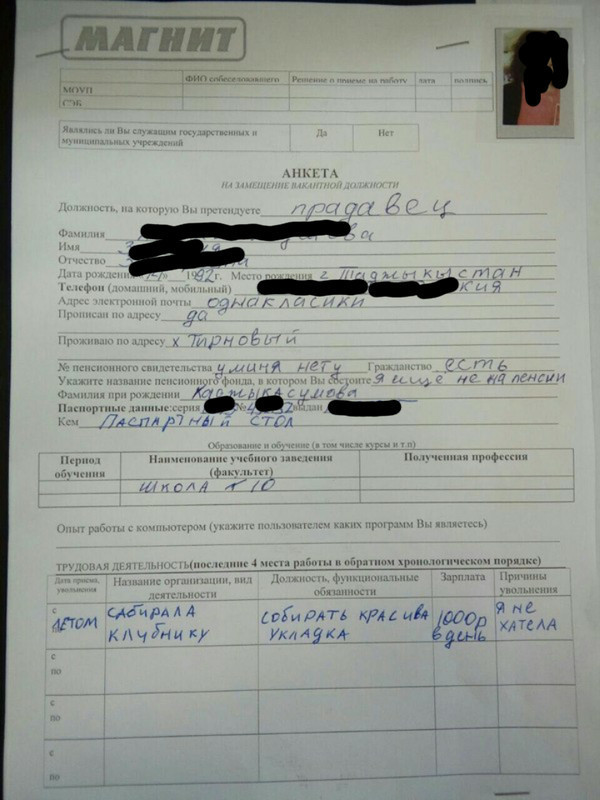 МАГНИТ
ФИО собеседовавшего Решение о приеме на работу дата подпись
МОУП
СЭБ
Являлись ли Вы служащим государственных и муниципальных учреждений Да Нет
АНКЕТА
НА ЗАМЕЩЕНИЕ ВАКАНТНОЙ ДОЛЖНОСТИ
Должность, на которую Вы претендуете прадавец
Фамилия
Имя
Отчество
Дата рождения 1992г. Место рождения г Таджыкыстан
Телефон (домашний, мобильный) кия
Адрес электронной почты однакласики
Прописан по адресу да
Проживаю по адресу х Тирновый
№ пенсионного свидетельства уминя нету Гражданство есть
Укажите название пенсионного фонда, в котором Вы состоите я ищё не на пенсии
Фамилия при рождении
Паспортные данные: серия № выдан
Кем Паспартный стол
Образование и обучение (в том числе курсы и т.п)
Период обучения Наименование учебного заведения (факультет) Полученная профессия
школа 10
Опыт работы с компьютером (укажите пользователем каких программ Вы являетесь)
ТРУДОВАЯ ДЕЯТЕЛЬНОСТЬ(последние 4 места работы в обратном хронологическом порядке)
Дата приема, увольнения Название организации, вид деятельности Должность, функциональные обязанности Зарплата Причины увольнения
с летом сабирала клубнику собирать красива укладка 1000р в день я не хатела
с
по
с
по
с
по